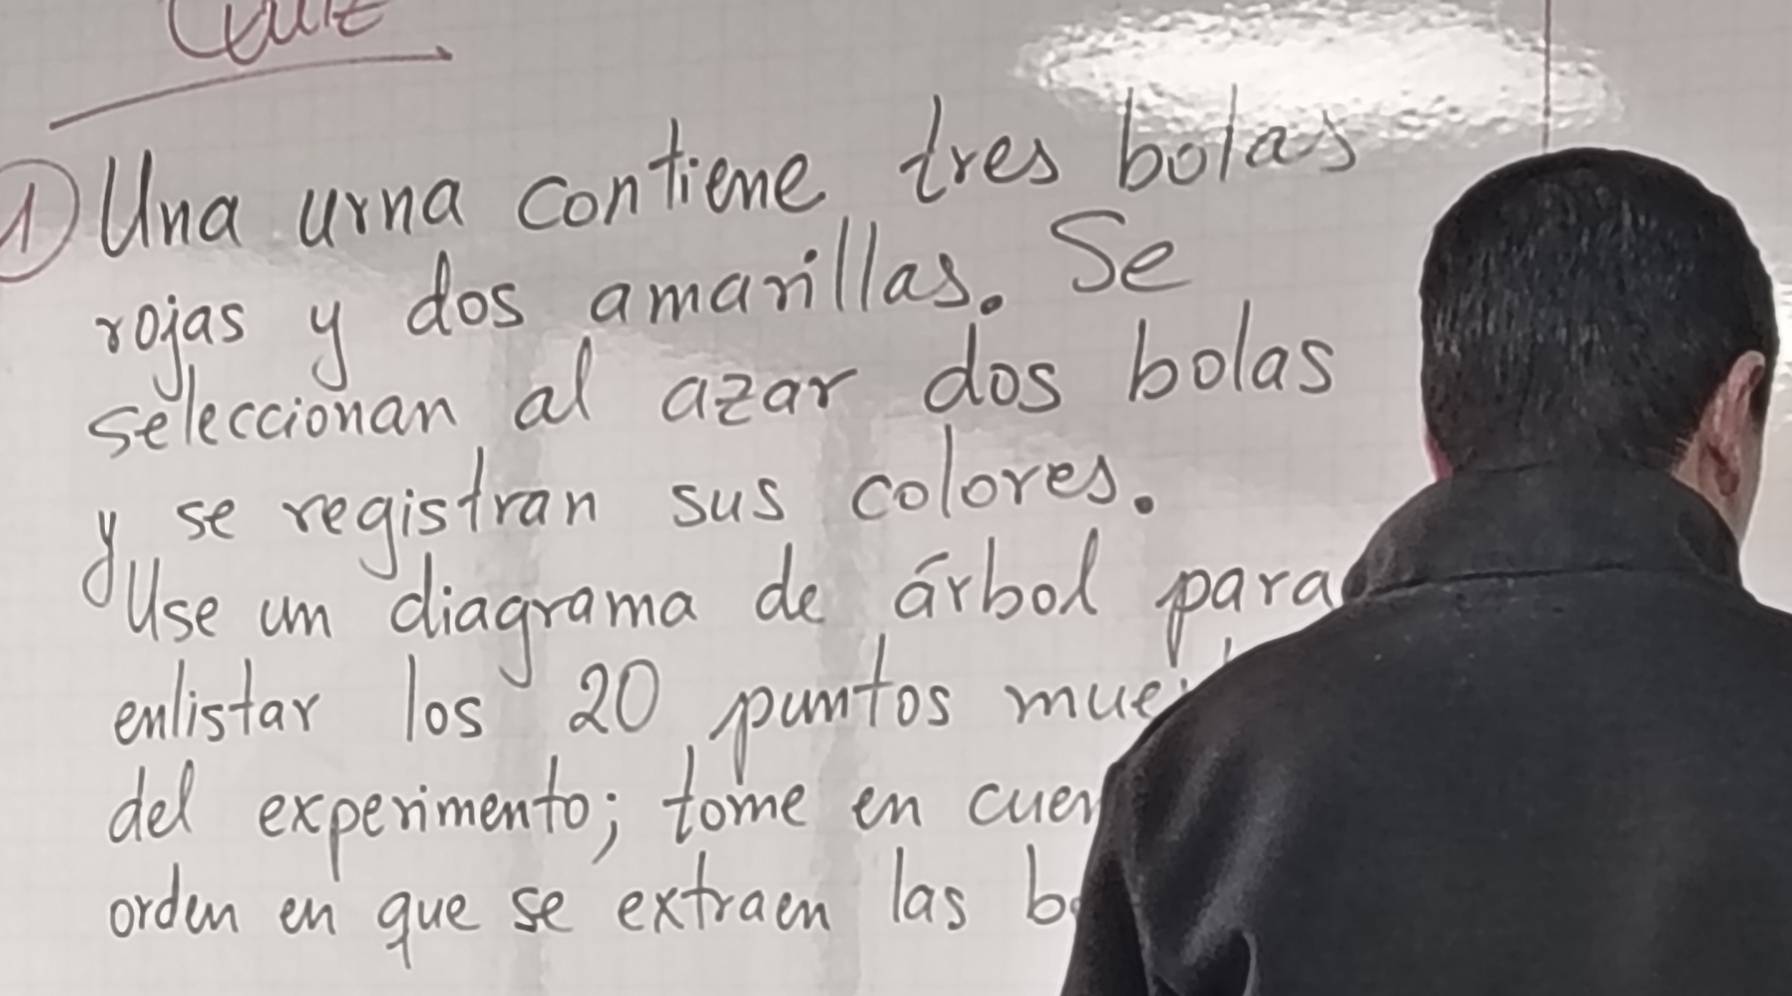 ① Una urna contiene tres bolas
rojas y dos amarillas. Se
seleccionan al azar dos bolas
y se registran sus colores.
Use un diagrama de árbol para
enlistar los 20 puntos
del experimento; tome en
orden en que se extraen las